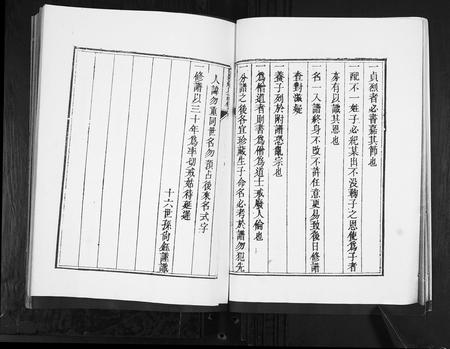 一貞烈者必書嘉其節也
一配不一姓子必紀某出不没鞠子之恩使為子者
亦有以識其恩也
一名一入譜終身不改不許任意更易致後日修譜
查對滋疑
一養子列於附譜恐亂宗也
一為僧道者則書為僧為道士戒廢人倫也
一分譜之後各宜珍藏生子命名必考於譜勿犯先
人諱勿重同世名勿預占後來名式字
一修譜以三十年為率切戒姑待延遲
十六世孫向鈺謙識